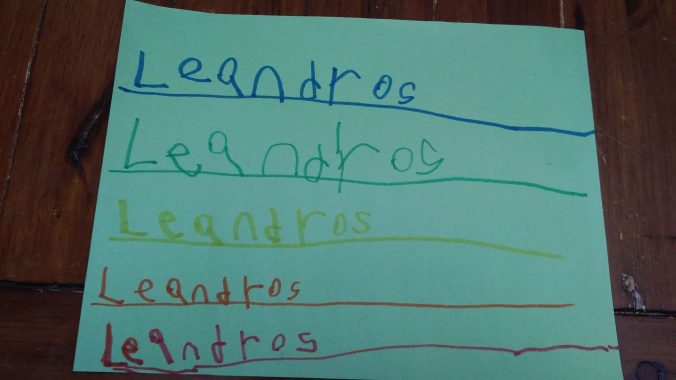 Leandros
Leandros
Leandros
Leandros
Leandros